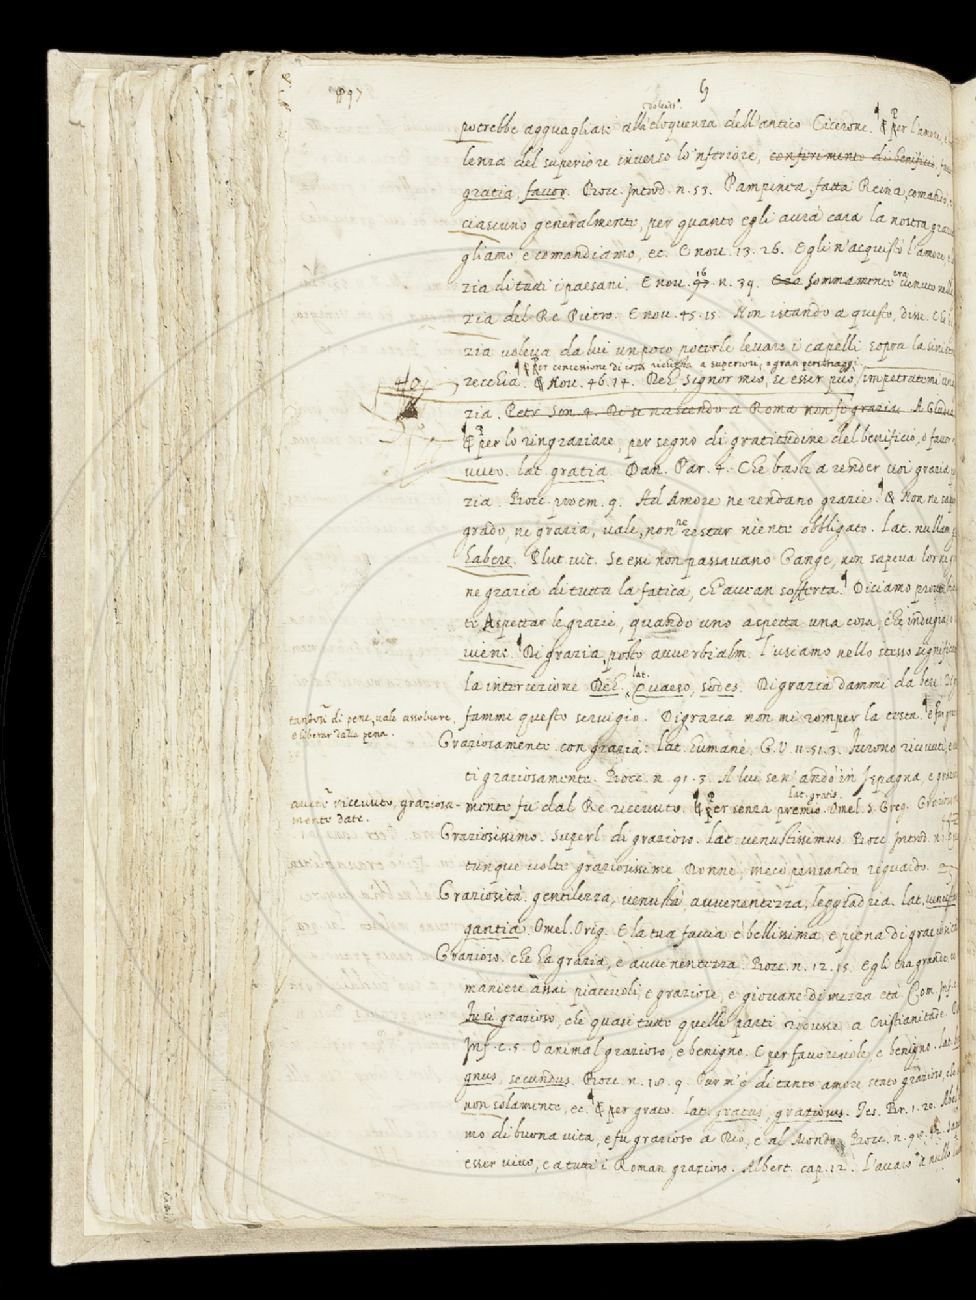 897
G
volgare
potrebbe agguagliare alla eloquenza dell'antico Cicerone. ¶ E per l'amore, e
lenza del superiore inverso lo'nferiore, conferimento di benificio, fau
gratia, favor. Bocc. Introd. n. 53. Pampinea, fatta Reina, comandò
ciascuno generalmente, per quanto egli aurà cara la nostra grazia
gliamo e comandiamo, ec. E nou. 13. 26. Egli n'acquistò l'amore, e
zia di tutti i paesani. E nou. 16 n. 39. Era sommamente era venuto nella
zia del Re Pietro. E nou. 45. 15. Non istando a questo, disse
zia voleva da lui un poco poterle levare i capelli sopra la sinistra
¶ E per concessione di cosa richiesta a superiori, o gran personaggi.
recchia. E Nou. 46. 14. Deh Signor mio, se esser può, impetratemi una
zia. Petr. Son. 4. Di se nascendo a Roma non fe grazia. A Giudea
40
¶ E per lo ringraziare, per segno di gratitudine del benificio, o favor
vuto. lat. gratia. Dan. Par. 4. Che basti a render voi grazia
zia. Bocc. proem. 9. Ad Amore ne rendano grazie. ¶ E Non ne saper
grado, ne grazia, vale, non ne restar niente obbligato. Lat. nullam
habere. Plut. vit. Se essi non passavano Gange, non sapeva lor
ne grazia di tutta la fatica, ch'avean sofferta. ¶ Diciamo
te Aspettar le grazie, quando uno aspetta una cosa, che indugia
venire. ¶ Di grazia, posto avverbialm. l'usiamo nello stesso signific
la intercezione Deh, lat. Quaeso, sodes. Di grazia dammi da bere. Di
fammi questo servigio. Di grazia non mi romper la testa. ¶ E far
di pene, vale assolvere,
e liberar dalla pena.
Graziosamente. con grazia: lat. humanè. G. V. 11. 51. 3. Furono ricevuti,
ti graziosamente. Bocc. n. 91. 3. A lui sen'andò in Ispagna, e
mente fu dal Re ricevuto. ¶ E per senza premio. lat. gratis. Omel. S. Greg.
avete ricevuto, graziosa-
mente date.
Graziosissimo. Superl. di grazioso. lat. venustissimus. Bocc. Introd. n.
tunque volte graziosissime Donne, meco pensando riguardo.
Graziosità. gentilezza, venustà avvenentezza, leggiadria. lat. venustas
gantia. Omel. Orig. E la tua faccia è bellissima, e piena di graziosità
Grazioso. che ha grazia, e avvenentezza. Bocc. n. 12. 15. Egli era grande
maniere assai piacevoli, e graziose, e giovane di mezza età. Com. Inf.
Fu sì grazioso, che quasi tutte quelle parti ridusse a Cristianitade.
Inf. c. 5. O animal grazioso, e benigno. E per favorevole, e benigno. lat.
gnus, secundus. Bocc. n. 10. 9. Pur m'è di tanto amore stato grazioso, che
non solamente, ec. ¶ E per grato. lat. gratus, gratiosus. Tes. Br. 1. 20.
mo di buona vita, e fu grazioso a Dio, e al Mondo. Bocc. n.
esser vivo, e a tutti i Roman grazioso. Albert. cap. 12. L'avaro a nullo